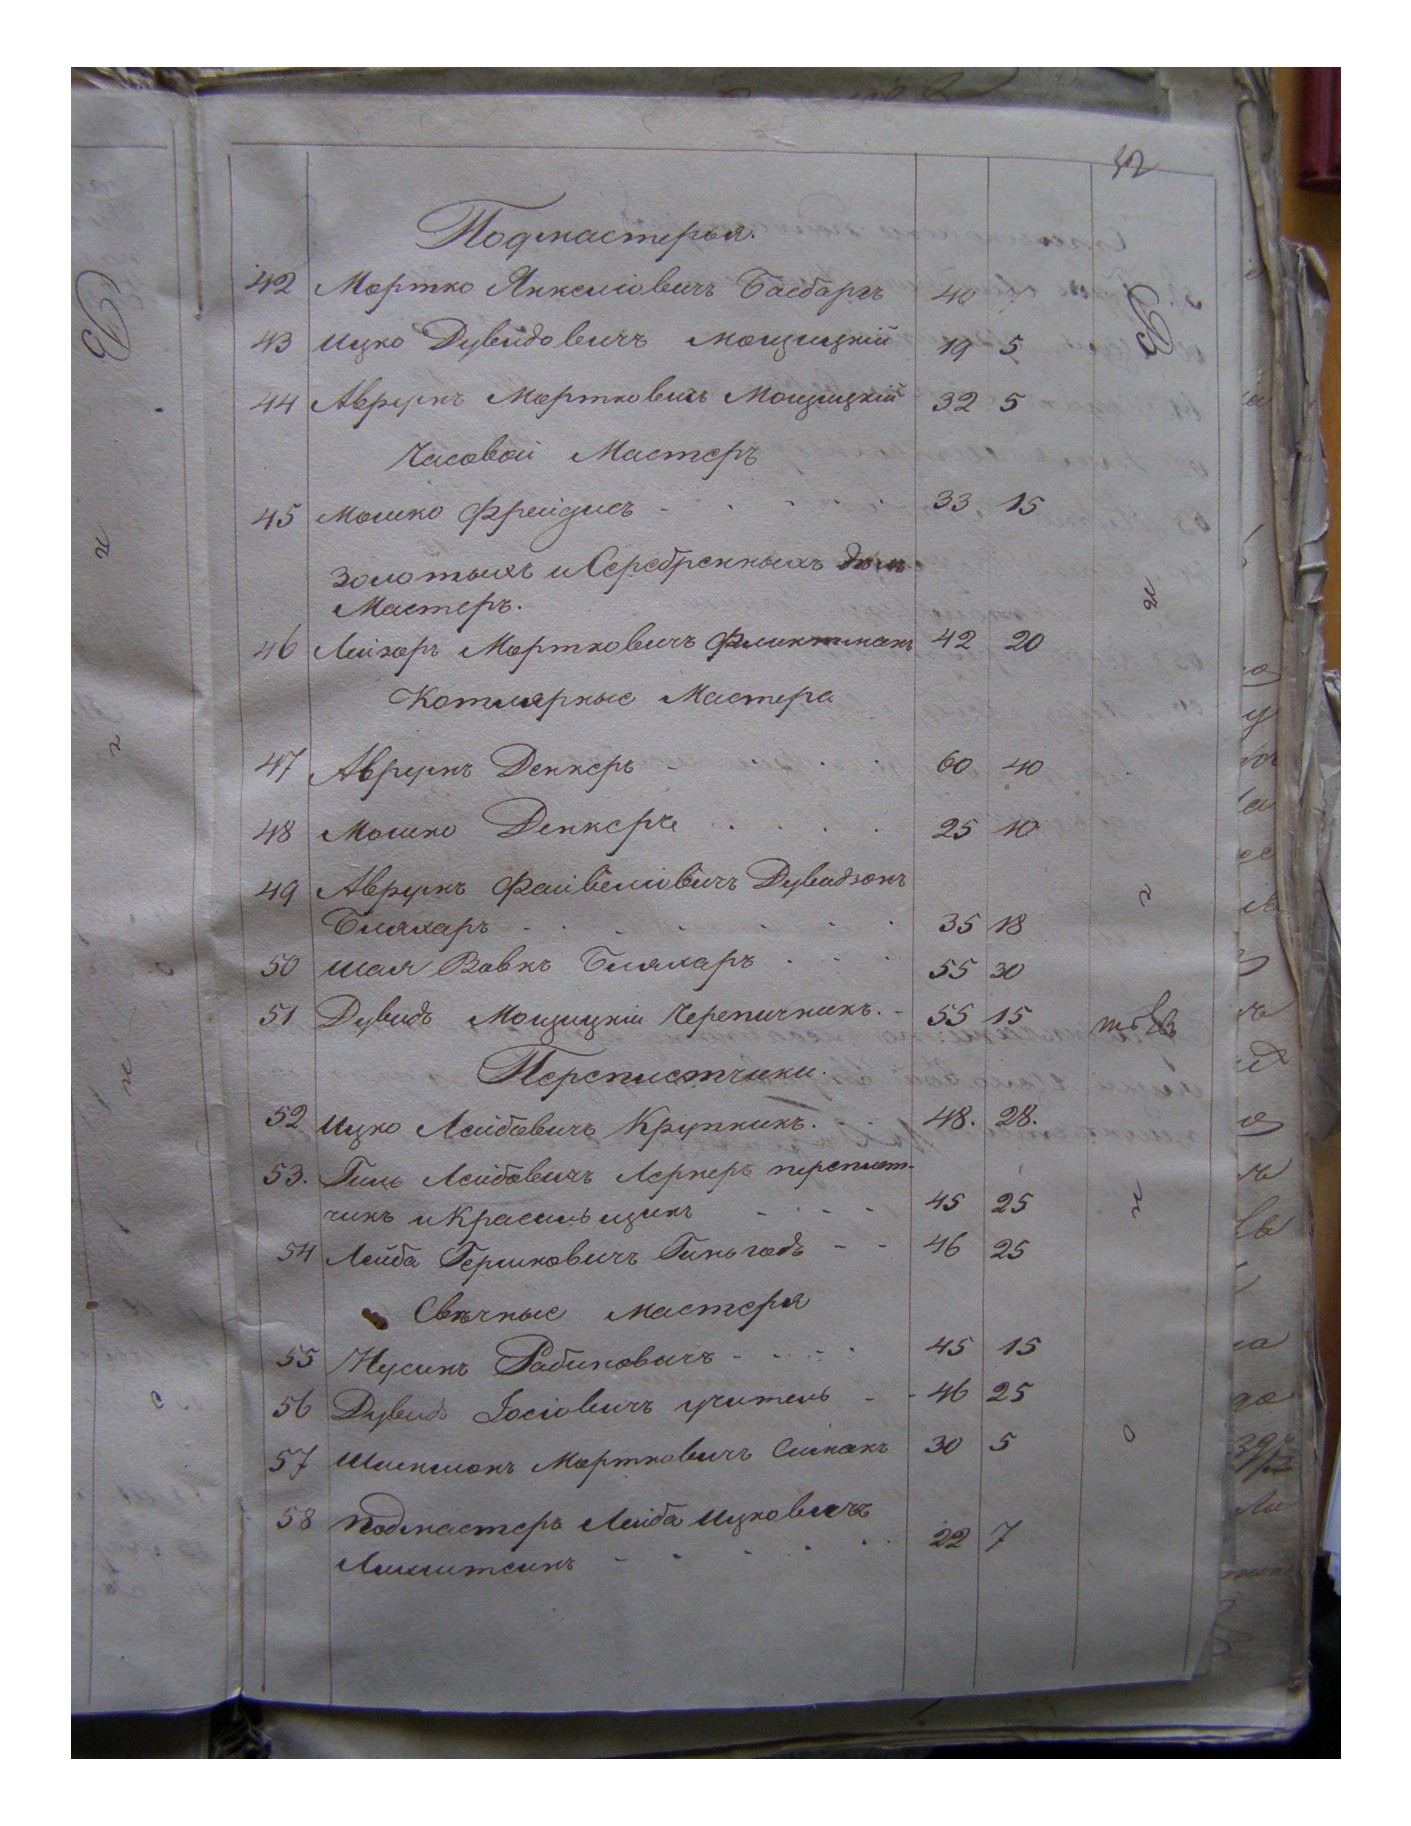 32
Подмастерья.
42 Мортко Янкелiовичъ Басбаргъ 40
43 Ицко Дувидовичъ Мощицкiй 19 5
44 Аврумъ Мортковичъ Мощицкiй 32 5
Часовой Мастеръ
45 Мошко Фрейдисъ - . . . . 33 15
Золотыхъ и Серебренныхъ дѣлъ
Мастеръ.
46 Лейзоръ Мортковичъ 42 20
Котлярные Мастера
47 Аврумъ Деккеръ - . . . 60 40
48 Мошко Деккеръ . . . . 25 10
49 Аврумъ Файвелiовичъ Дувидзонъ
Бляхаръ - . . . . . . 35 18
50 Шая Вовкъ Бляхаръ . . . 55 30
51 Дувидъ Мощицкiй Черепичникъ. - 55 15
Переплетчики.
52 Ицко Лейбовичъ Крупникъ. . . 48. 28.
53. Гиль Лейбовичъ Лернеръ переплет-
чикъ и Красильщикъ - - - - 45 25
54 Лейба Гершковичъ Гиньгодъ - - 46 25
Свѣчные мастеря
55 Нусинъ Рабиновичъ - - - - 45 15
56 Дувидъ Іосiовичъ учитель - - 46 25
57 Шлiомонъ Мортковичъ 30 5
58 Подмастеръ Лейба Ицковичъ
- - - . . . 22 7